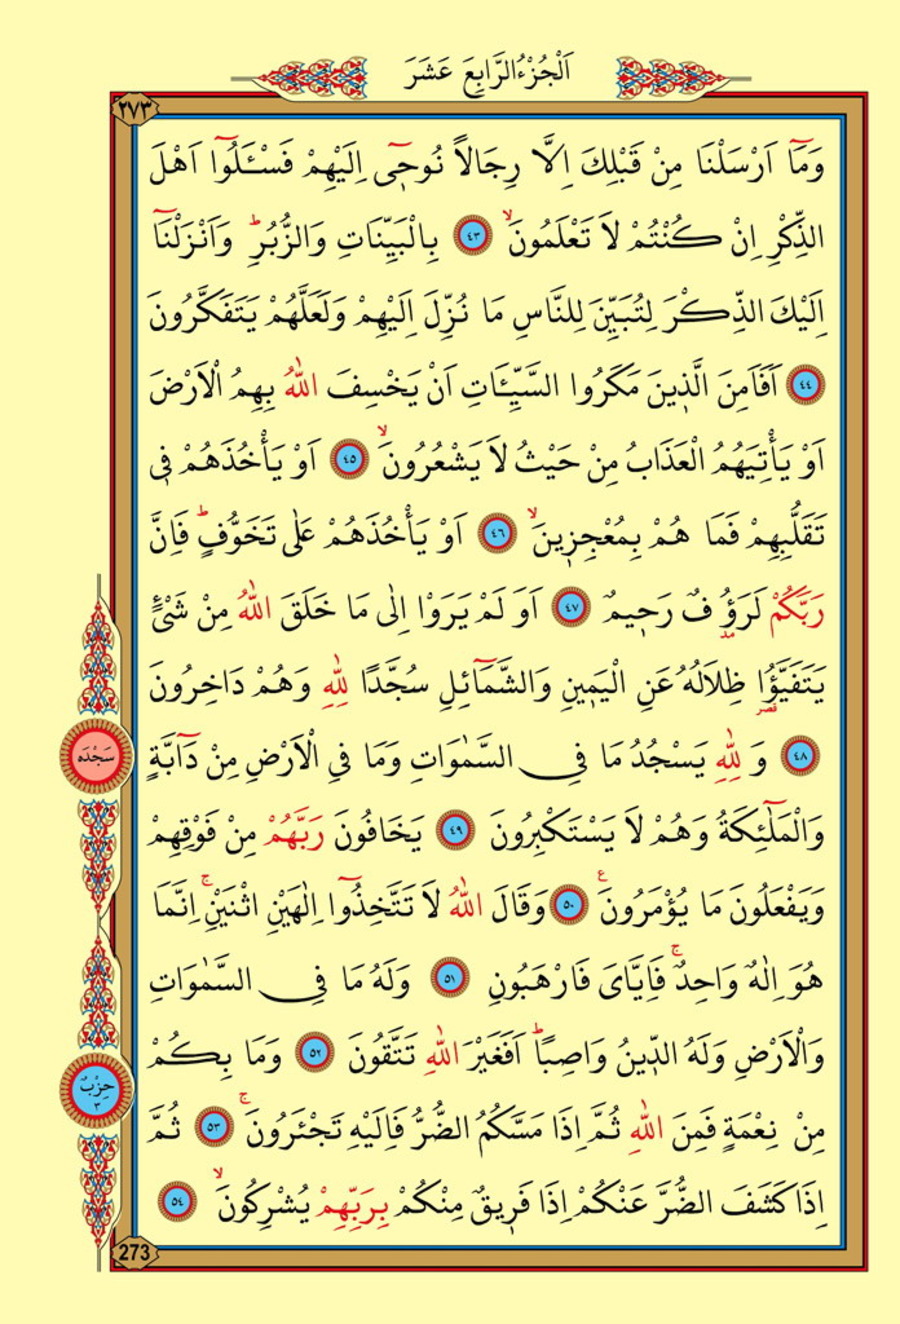 اَلْجُزْءُ الرَّابِعَ عَشَرَ
٢٧٣
وَمَٓا اَرْسَلْنَا مِنْ قَبْلِكَ اِلَّا رِجَالاً نُوحٖٓى اِلَيْهِمْ فَسْـَٔلُٓوا اَهْلَ
الذِّكْرِ اِنْ كُنْتُمْ لَا تَعْلَمُونَۙ ٤٣ بِالْبَيِّنَاتِ وَالزُّبُرِؕ وَاَنْزَلْنَٓا
اِلَيْكَ الذِّكْرَ لِتُبَيِّنَ لِلنَّاسِ مَا نُزِّلَ اِلَيْهِمْ وَلَعَلَّهُمْ يَتَفَكَّرُونَ
٤٤ اَفَاَمِنَ الَّذٖينَ مَكَرُوا السَّيِّـَٔاتِ اَنْ يَخْسِفَ اللّٰهُ بِهِمُ الْاَرْضَ
اَوْ يَأْتِيَهُمُ الْعَذَابُ مِنْ حَيْثُ لَا يَشْعُرُونَۙ ٤٥ اَوْ يَأْخُذَهُمْ فٖى
تَقَلُّبِهِمْ فَمَا هُمْ بِمُعْجِزٖينَۙ ٤٦ اَوْ يَأْخُذَهُمْ عَلٰى تَخَوُّفٍؕ فَاِنَّ
رَبَّكُمْ لَرَؤُفٌ رَحٖيمٌ ٤٧ اَوَ لَمْ يَرَوْا اِلٰى مَا خَلَقَ اللّٰهُ مِنْ شَیْءٍ
مد
يَتَفَيَّؤُا ظِلَالُهُ عَنِ الْيَمٖينِ وَالشَّمَٓائِلِ سُجَّدًا لِلّٰهِ وَهُمْ دَاخِرُونَ
قصر
٤٨ وَلِلّٰهِ يَسْجُدُ مَا فِى السَّمٰوَاتِ وَمَا فِى الْاَرْضِ مِنْ دَٓابَّةٍ
سَجْدَه
وَالْمَلٰٓئِكَةُ وَهُمْ لَا يَسْتَكْبِرُونَ ٤٩ يَخَافُونَ رَبَّهُمْ مِنْ فَوْقِهِمْ
وَيَفْعَلُونَ مَا يُؤْمَرُونَ ع ٥٠ وَقَالَ اللّٰهُ لَا تَتَّخِذُٓوا اِلٰهَيْنِ اثْنَيْنِۚ اِنَّمَا
هُوَ اِلٰهٌ وَاحِدٌۚ فَاِيَّاىَ فَارْهَبُونِ ٥١ وَلَهُ مَا فِى السَّمٰوَاتِ
وَالْاَرْضِ وَلَهُ الدّٖينُ وَاصِبًاؕ اَفَغَيْرَ اللّٰهِ تَتَّقُونَ ٥٢ وَمَا بِكُمْ
حِزْبٌ
٣
مِنْ نِعْمَةٍ فَمِنَ اللّٰهِ ثُمَّ اِذَا مَسَّكُمُ الضُّرُّ فَاِلَيْهِ تَجْـَٔرُونَۚ ٥٣ ثُمَّ
اِذَا كَشَفَ الضُّرَّ عَنْكُمْ اِذَا فَرٖيقٌ مِنْكُمْ بِرَبِّهِمْ يُشْرِكُونَۙ ٥٤
273